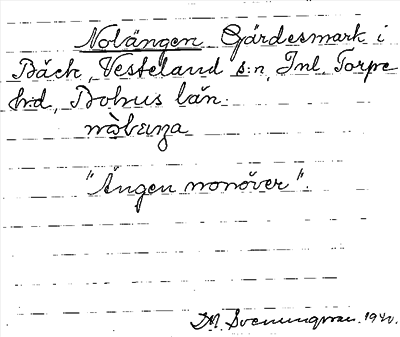 Nolängen Gärdesmark i
Bäck, Vesteland s:n, Inl. Torpe
hd, Bohus län.
"Ängen nonöver".
D.M. Svenungsson. 1940.